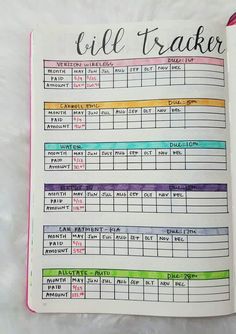 bill tracker
VERIZON WIRELESS DUE: 1ST
MONTH MAY JUN JUL AUG SEP OCT NOV DEC
PAID
AMOUNT
DUE: 5TH
MONTH MAY JUN JUL AUG SEP OCT NOV DEC
PAID
AMOUNT
WATER DUE: 10TH
MONTH MAY JUN JUL AUG SEP OCT NOV DEC
PAID
AMOUNT
MONTH MAY JUN JUL AUG SEP OCT NOV DEC
PAID
AMOUNT
CAR PAYMENT - KIA DUE: 17TH
MONTH MAY JUN JUL AUG SEP OCT NOV DEC
PAID
AMOUNT
ALLSTATE - AUTO DUE: 28TH
MONTH MAY JUN JUL AUG SEP OCT NOV DEC
PAID
AMOUNT